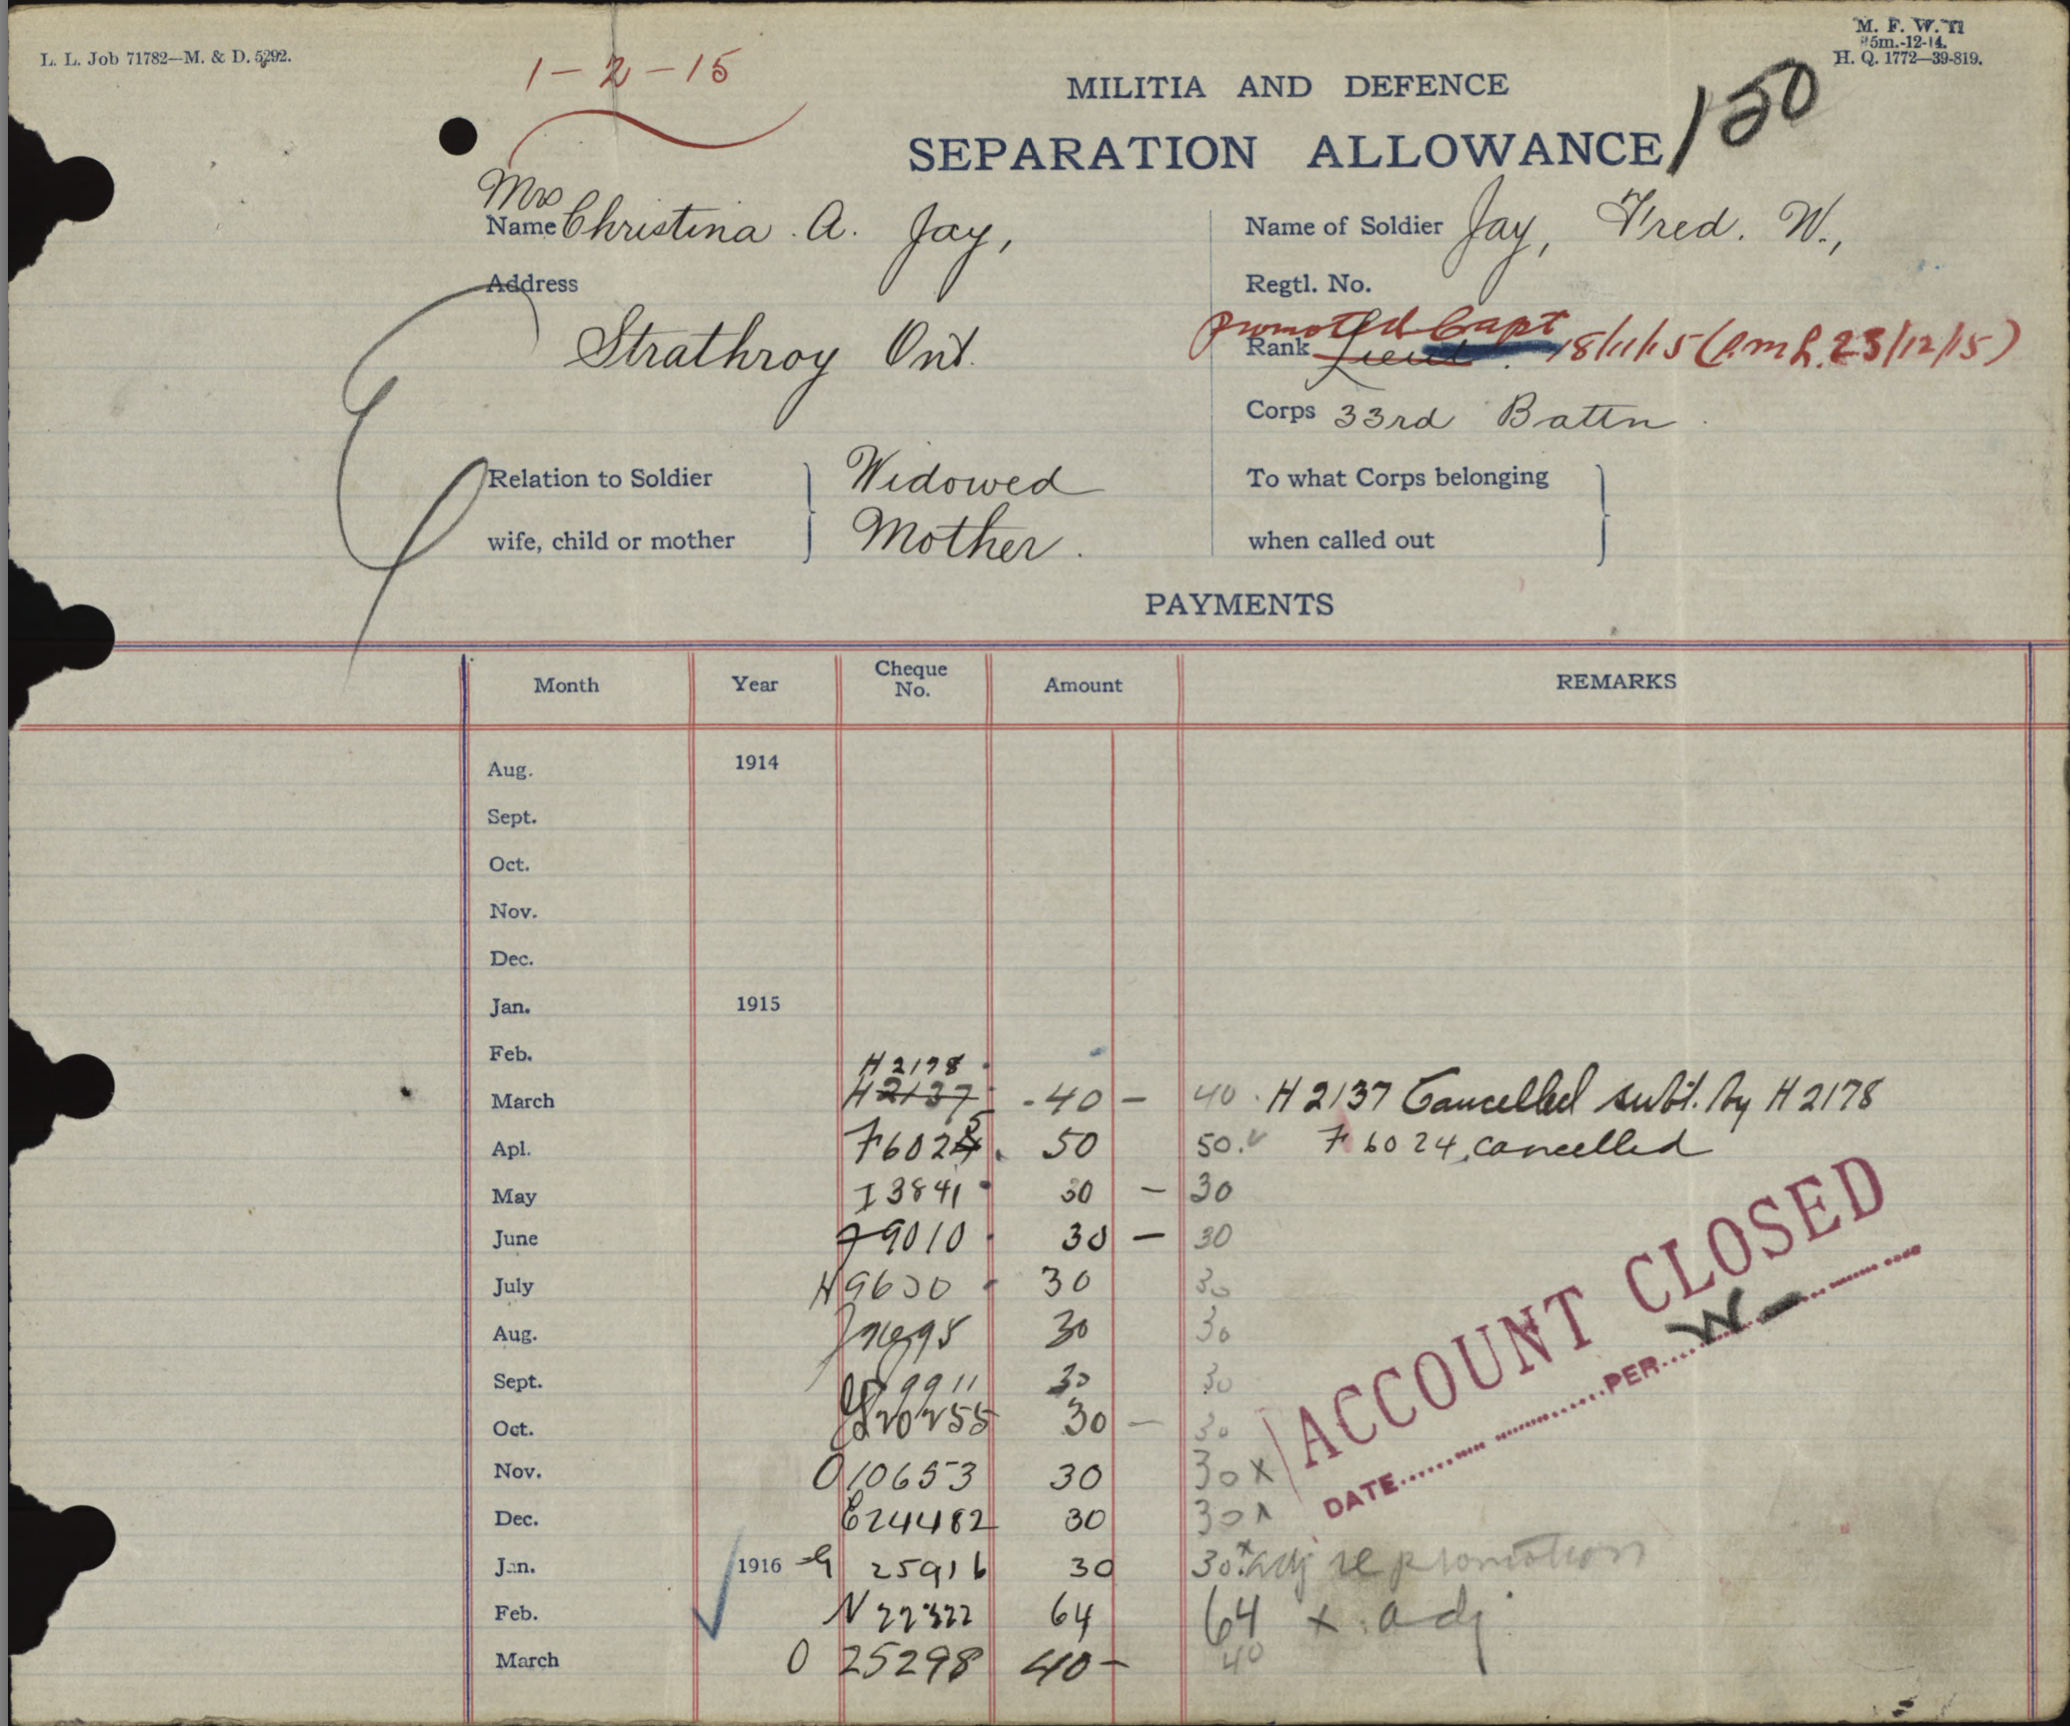 L. L. Job 71782—M. & D. 5292.
M. F. W. 11
25m.-12-14.
H. Q. 1772—39-819.
1-2-15
MILITIA AND DEFENCE
SEPARATION ALLOWANCE
150
Mrs
Name Christina A. Jay,
Name of Soldier Jay, Fred. W.,
Address
Regtl. No.
Strathroy Ont.
promoted Capt
Rank Lieut. 18/11/15 (P.M.L. 23/12/15)
Corps 33rd Battn.
Relation to Soldier Widowed
To what Corps belonging
wife, child or mother Mother.
when called out
PAYMENTS
Month Year Cheque No. Amount REMARKS
Aug. 1914
Sept.
Oct.
Nov.
Dec.
Jan. 1915
Feb.
H 2178
March H 2137 40 — 40 H 2137 Cancelled subt. by H 2178
Apl. F 6025 50 50. F 6024 cancelled
May I 3841 30 — 30
June J 9010 30 — 30
July H 9630 30 30
Aug. 30 30
Sept. 9911 30 30
Oct. 20255 30 — 30
Nov. O 10653 30 30 x
Dec. E 24482 30 30 x
Jan. 1916 G 25916 30 30 x adj re promotion
Feb. N 22322 64 64 x adj.
March O 25298 40 — 40
ACCOUNT CLOSED
DATE PER W